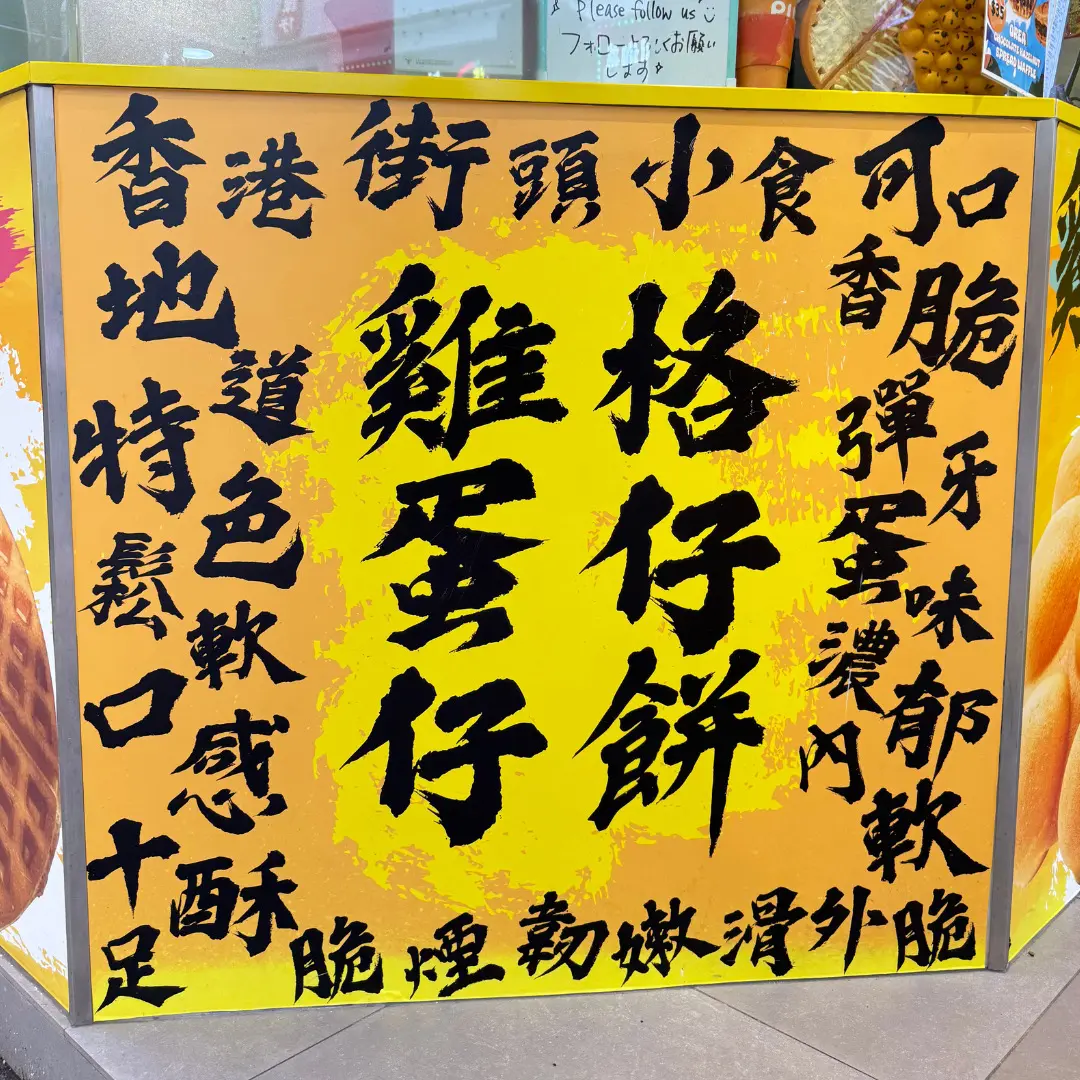 Please follow us
フォロー お願い
します
$35
CHOCOLATE HAZELNUT
SPREAD WAFFLE
香港街頭小食可口
地道特色
鬆軟口感十足
酥脆煙韌嫩滑外脆
香脆
彈牙
蛋味濃郁
內軟
雞蛋仔
格仔餅